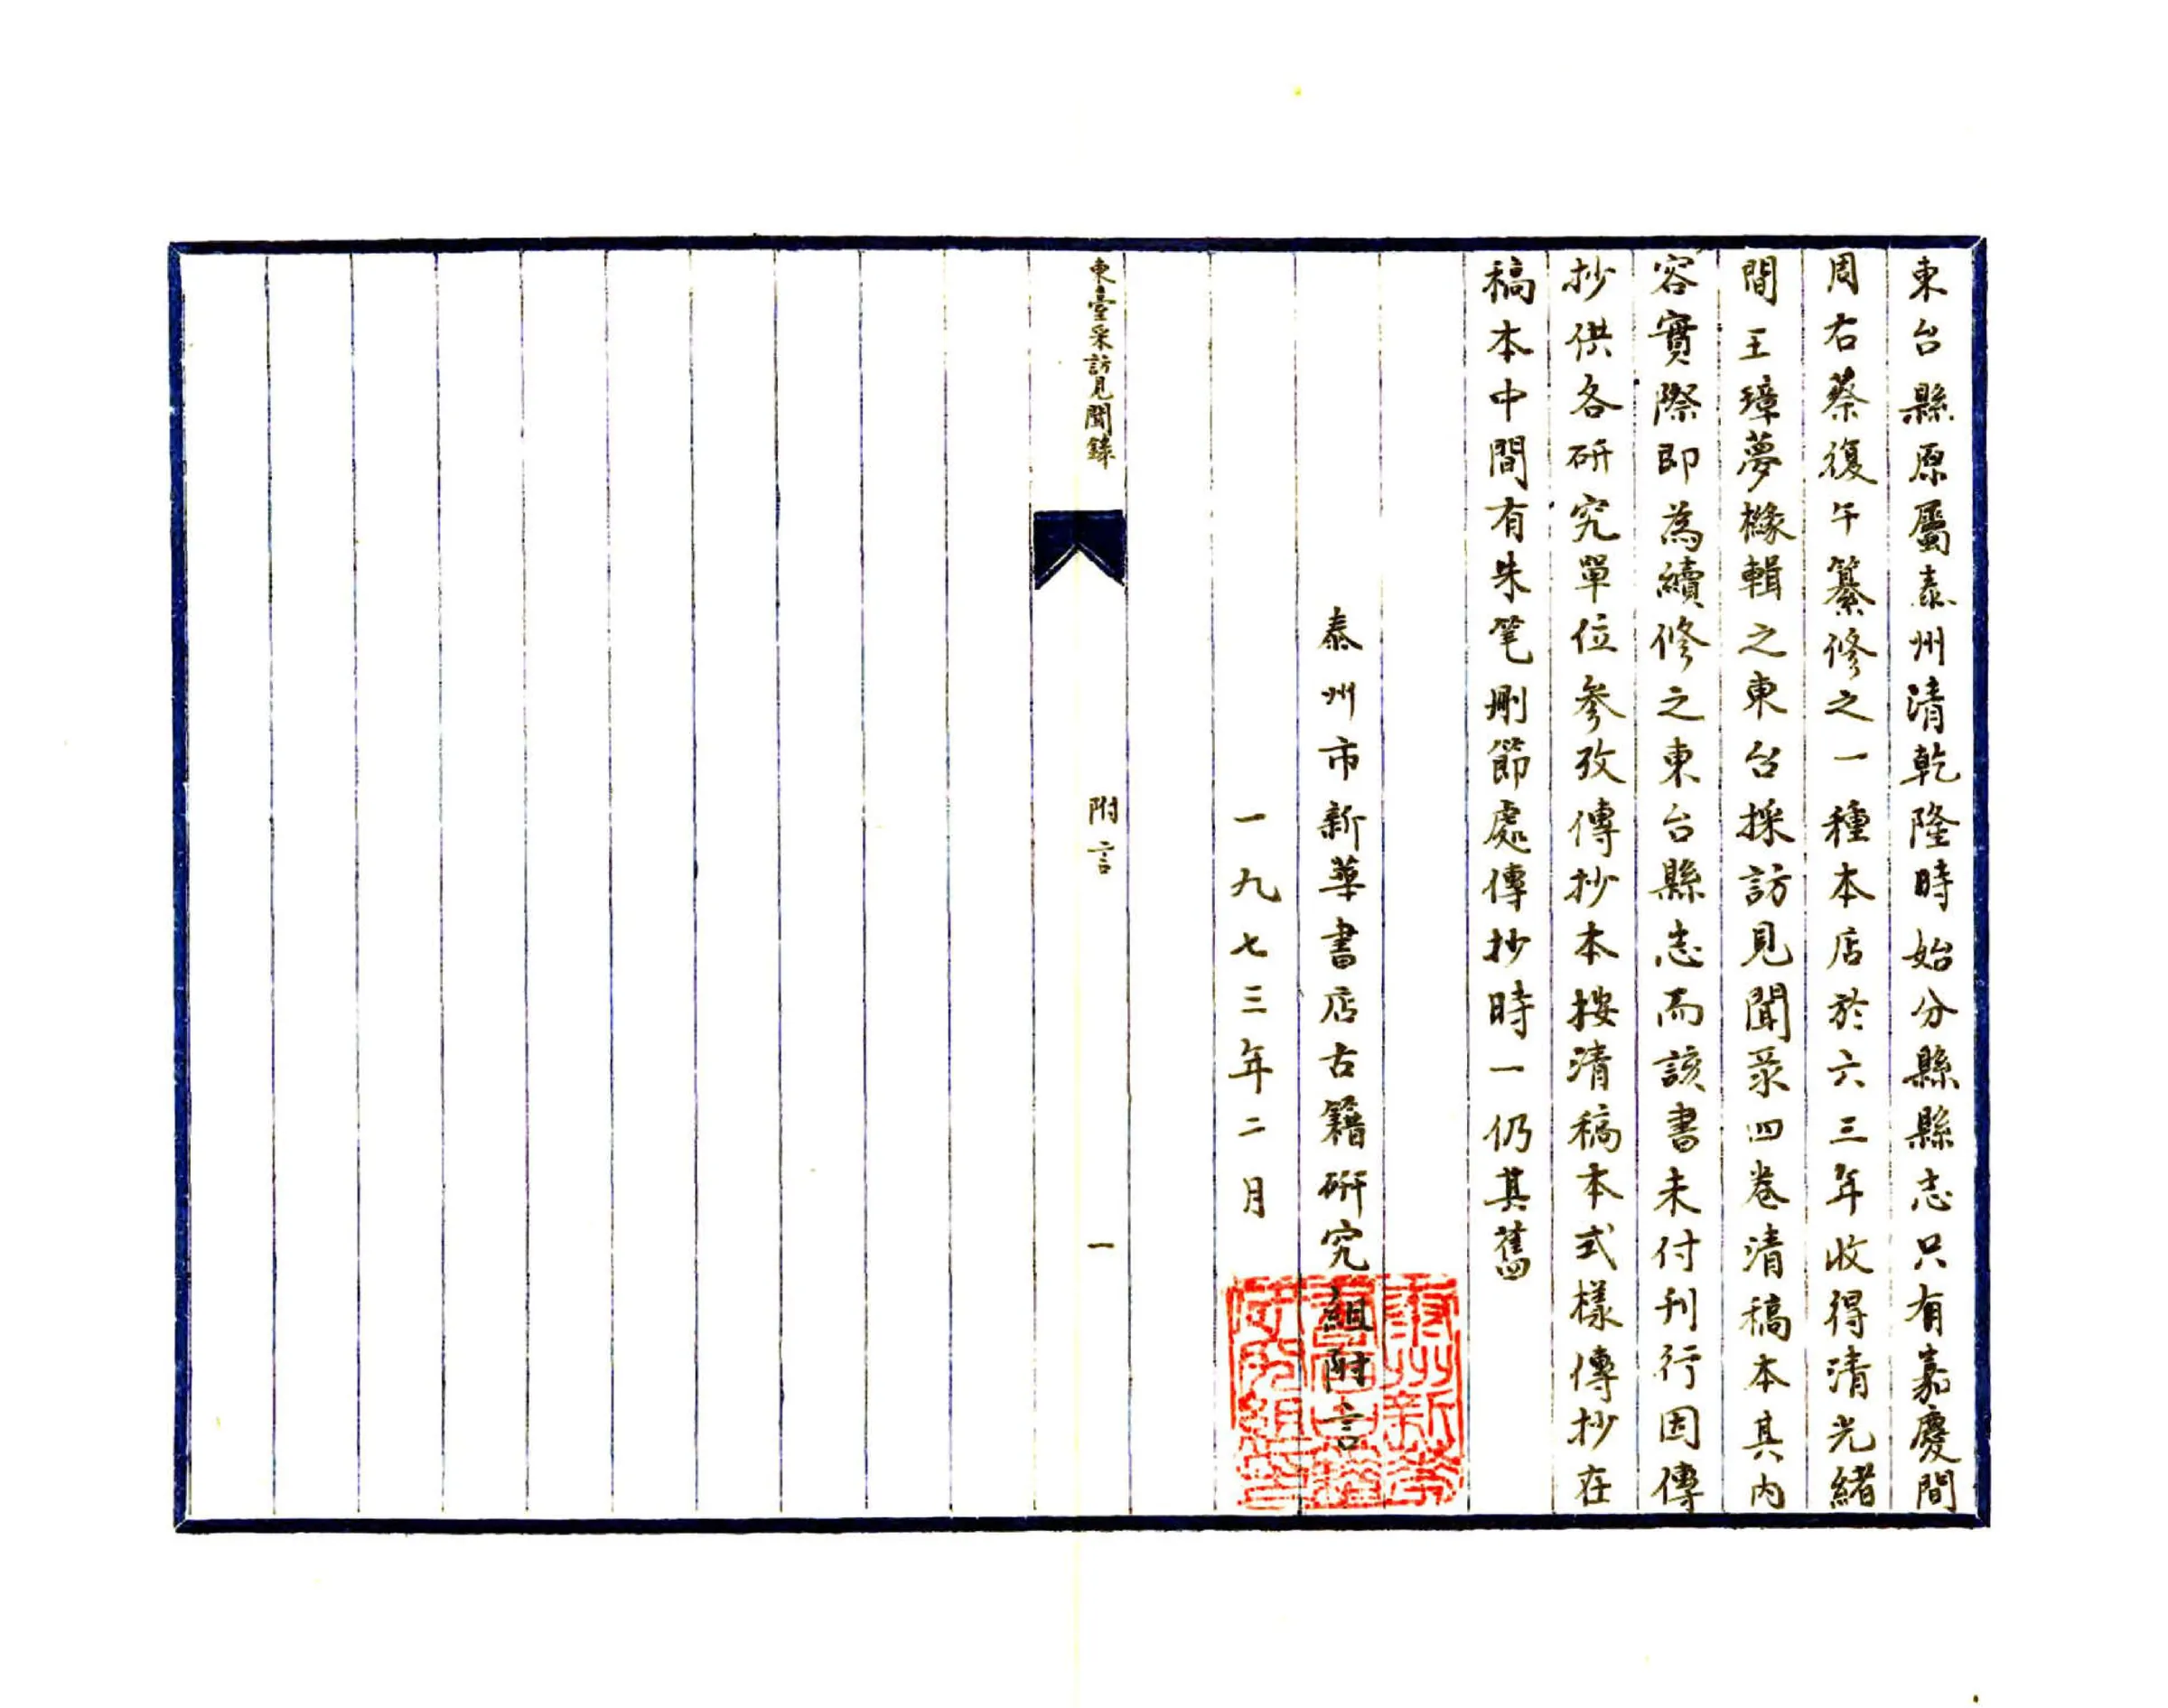 東台縣原屬泰州清乾隆時始分縣縣志只有嘉慶間
周右蔡復午纂修之一種本店於六三年收得清光緒
間王璋夢橼輯之東台採訪見聞彔四卷清稿本其内
容實際即為續修之東台縣志而該書未付刊行因傳
抄供各研究單位參攷傳抄本按清稿本式樣傳抄在
稿本中間有朱笔刪節處傳抄時一仍其舊
泰州市新華書店古籍研究組附言
一九七三年二月
東臺采訪見聞錄
附言
一